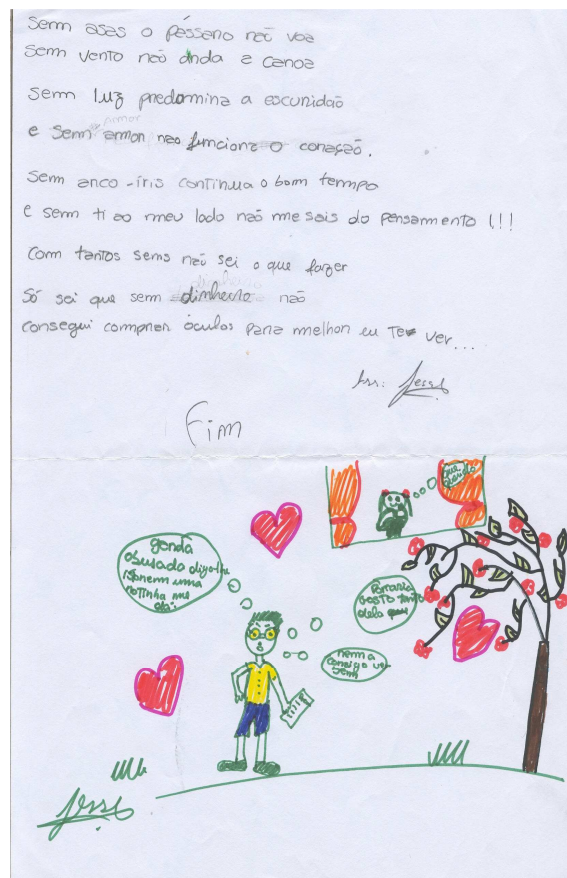 Sem asas o pássaro não voa
Sem vento não anda a canoa
Sem luz predomina a escuridão
e sem amor não funciona o coração.
Sem arco-íris continua o bom tempo
e sem ti ao meu lado não me sais do pensamento !!!
Com tantos sems não sei o que fazer
Só sei que sem dinheiro não
consegui comprar óculos para melhor eu te ver...
Ass: Jessi
Fim
que
gorda
nem uma
gosto tanto
dela
nem a
consigo ver
bem
Jessi